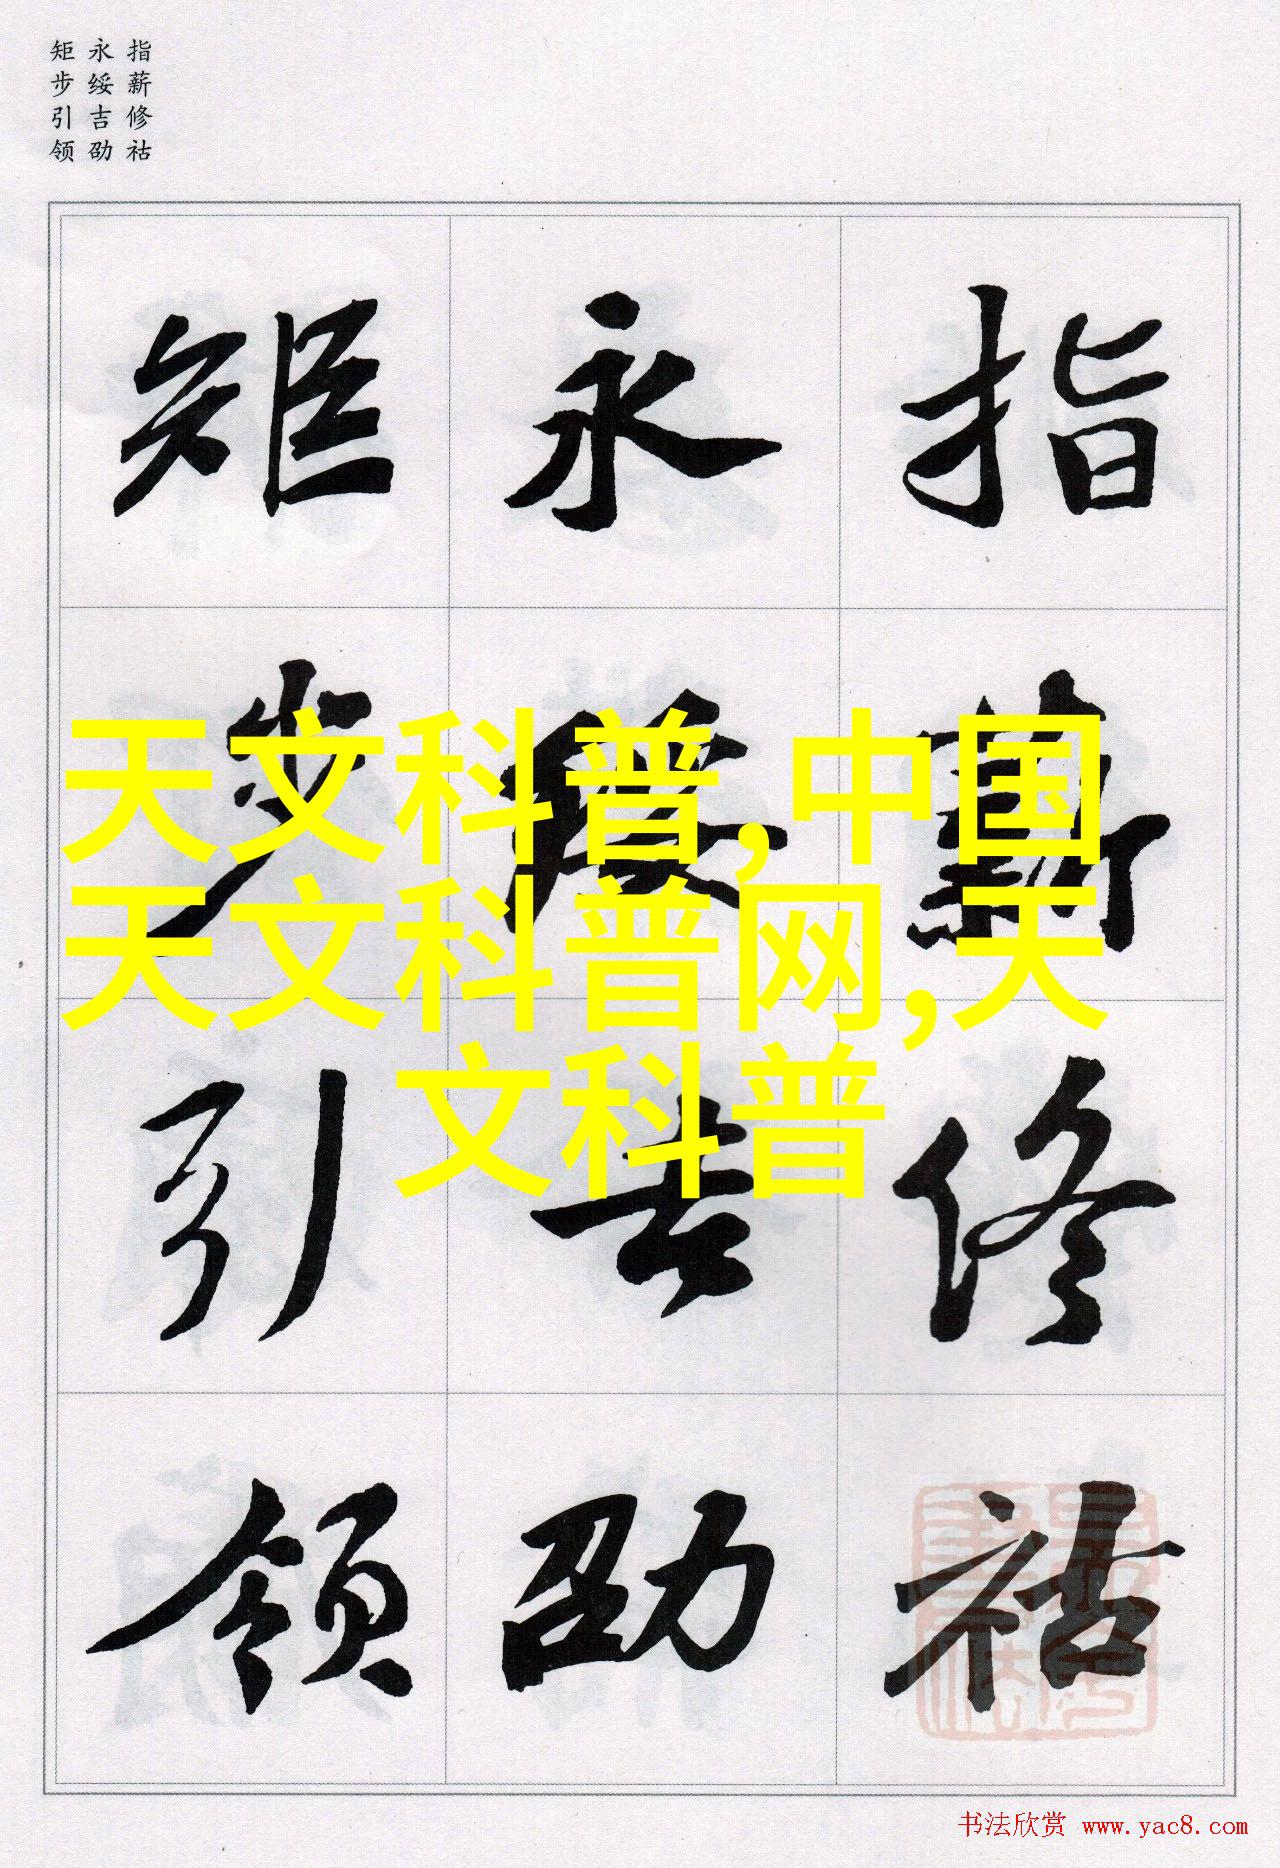 指薪修祜
永绥吉劭
矩步引领
指薪修祜
永绥吉劭
矩步引领
天文科普,中国
天文科普网,天
文科普
书法欣赏 www.yac8.com